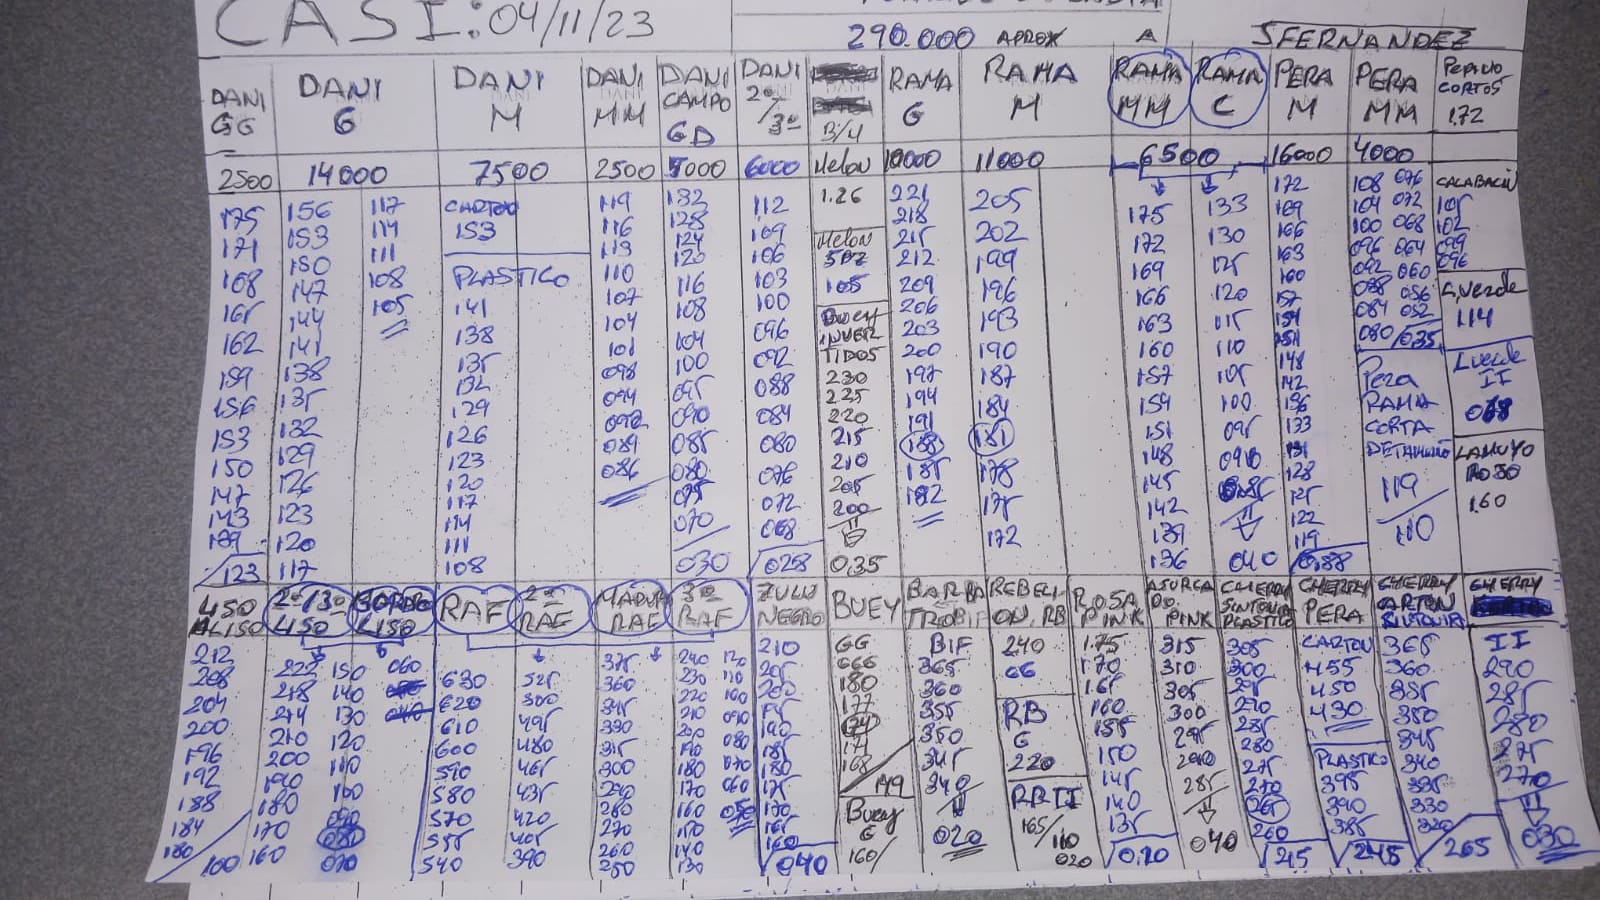 CASI: 04/11/23
290.000 APROX A SFERNANDEZ
DANI GG
DANI G
DANI M
DANI MM
DANI CAMPO GD
DANI 2º/3º
B/4
RAMA G
RAMA M
RAMA MM
RAMA C
PERA M
PERA MM
PEPINO CORTOS 1.72
2500 14000 7500 2500 5000 6000 Melon 10000 11000 6500 16000 4000
175
171
108
165
162
159
156
153
150
147
143
139
123
156 117
153 114
150 111
147 108
144 105
141
138
135
132
129
126
123
120
117
CARTON
153
PLASTICO
141
138
135
132
129
126
123
120
117
114
111
108
119
116
113
110
107
104
101
098
094
092
089
086
132
128
124
120
116
108
104
100
095
090
085
080
075
070
030
112
109
106
103
100
096
092
088
084
080
076
072
068
028
1.26
Melon
105
BUEY
INVER
TIDOS
230
225
220
215
210
205
200
035
221
218
215
212
209
206
203
200
197
194
191
188
185
182
205
202
199
196
193
190
187
184
181
178
175
172
175
172
169
166
163
160
157
154
151
148
145
142
139
136
133
130
125
120
115
110
105
100
095
090
085
040
172
169
166
163
160
157
154
151
148
142
136
133
131
128
125
122
119
0.88
108 076
104 072
100 068
096 064
092 060
088 056
084 052
080 /035
Pera
RAMA
CORTA
DETAMAÑO
119
110
CALABACIN
105
102
099
096
G,verde
114
L verde
II
068
LAMUYO
ROJO
1.60
450 ALISO
2º/3º 450
GORDO LISO
RAF
2º RAF
MADUR RAF
3º RAF
ZULU NEGRO
BUEY
BARBA
REBELION, RB
ROSA PINK
ASURCADO. PINK
CHERRY SINTONIA PLASTICO
CHERRY PERA
CHERRY CARTON SINTONIA
CHERRY
212
208
204
200
196
192
188
184
180
100
222 150
218 140
214 130
210 120
200 110
190 100
180 090
170 080
160 070
060
630
620
610
600
590
580
570
555
540
525
500
495
480
465
435
420
405
390
375
360
345
330
315
300
290
280
270
260
250
240 120
230 110
220 100
210 090
200 080
190 070
180 060
170 050
160
150
140
130
210
205
200
195
190
185
180
175
170
165
160
040
GG
666
180
177
174
171
168
149
Buey
G
160/
BIF
365
360
355
350
345
340
020
240
66
RB
G
220
RB II
165/
110
020
1.75
170
165
160
155
150
145
140
135
0.20
315
310
305
300
295
290
285
040
305
300
295
290
285
280
275
270
265
260
215
CARTON
455
450
430
PLASTICO
395
390
385
245
365
360
355
350
345
340
335
330
320
265
II
290
285
280
275
270
030